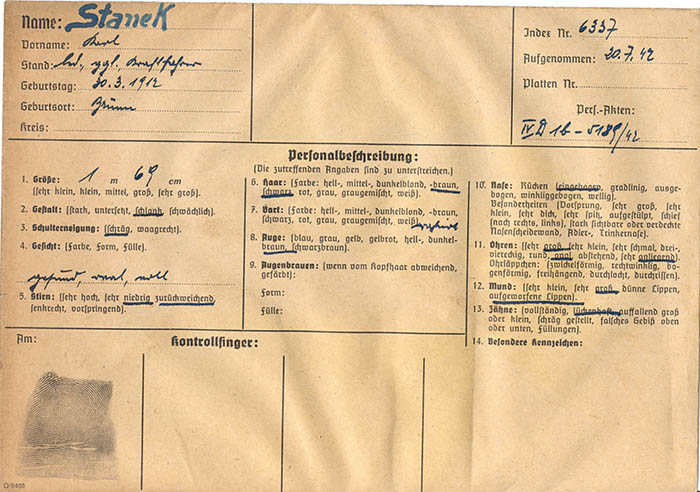 Name: Stanek
Vorname: Karl
Stand: led., ggl., Kraftfahrer
Geburtstag: 30.3.1912
Geburtsort: Brünn
Kreis:
Index Nr. 6337
Aufgenommen: 20.7.42
Platten Nr.
Pers.-Akten:
IV D 1b - 5189/42
Personalbeschreibung:
(Die zutreffenden Angaben sind zu unterstreichen.)
1. Größe: 1 m 69 cm
(sehr klein, klein, mittel, groß, sehr groß).
2. Gestalt: (stark, untersetzt, schlank, schwächlich).
3. Schulterneigung: (schräg, waagrecht).
4. Gesicht: (Farbe, Form, Fülle).
gesund, oval, voll
5. Stirn: (sehr hoch, sehr niedrig zurückweichend,
senkrecht, vorspringend).
6. Haar: (Farbe: hell-, mittel-, dunkelblond, -braun,
schwarz, rot, grau, graugemischt, weiß).
7. Bart: (Farbe: hell-, mittel-, dunkelblond, -braun,
schwarz, rot, grau, graugemischt, weiß).
8. Auge: (blau, grau, gelb, gelbrot, hell-, dunkel-
braun, schwarzbraun).
9. Augenbrauen: (wenn vom Kopfhaar abweichend,
gefärbt):
Form:
Fülle:
10. Nase: Rücken (eingebogen, gradlinig, ausge-
bogen, winkliggebogen, wellig).
Besonderheiten (Vorsprung, sehr groß, sehr
klein, sehr dick, sehr spitz, aufgestülpt, schief
(nach rechts, links), stark sichtbare oder verdeckte
Nasenscheidewand, Adler-, Trinkernase).
11. Ohren: (sehr groß, sehr klein, sehr schmal, drei-,
viereckig, rund, oval, abstehend, sehr anliegend).
Ohrläppchen: (zwickelförmig, rechtwinklig, bo-
genförmig, freihängend, durchlocht, durchrissen).
12. Mund: (sehr klein, sehr groß, dünne Lippen,
aufgeworfene Lippen).
13. Zähne: (vollständig, lückenhaft, auffallend groß
oder klein, schräg gestellt, falsches Gebiß oben
oder unten, Füllungen).
14. Besondere Kennzeichen:
Am:
Kontrollfinger: